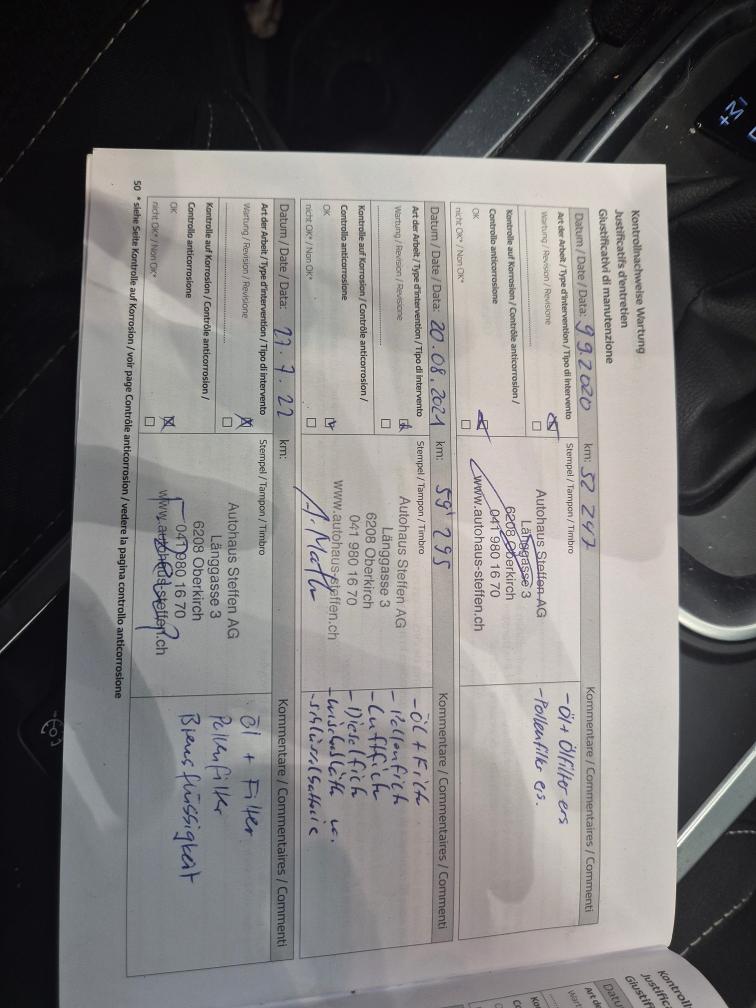 Kontrollnachweise Wartung
Justificatifs d'entretien
Giustificativi di manutenzione
Datum / Date / Data: 9.9.2020 km: 52 247 Kommentare / Commentaires / Commenti
Art der Arbeit / Type d'intervention / Tipo di intervento
Wartung / Revision / Revisione
Kontrolle auf Korrosion / Contrôle anticorrosion /
Controllo anticorrosione
OK
nicht OK* / Non OK*
Stempel / Tampon / Timbro
Autohaus Steffen AG
Länggasse 3
6208 Oberkirch
041 980 16 70
www.autohaus-steffen.ch
- Öl + Ölfilter ers
- Pollenfilter ers.
Datum / Date / Data: 20.08.2021 km: 59'295 Kommentare / Commentaires / Commenti
Art der Arbeit / Type d'intervention / Tipo di intervento
Wartung / Revision / Revisione
Kontrolle auf Korrosion / Contrôle anticorrosion /
Controllo anticorrosione
OK
nicht OK* / Non OK*
Stempel / Tampon / Timbro
Autohaus Steffen AG
Länggasse 3
6208 Oberkirch
041 980 16 70
www.autohaus-steffen.ch
- Öl + Filt
- Pollenfilt
- Luftfilt
- Dieselfilt
Datum / Date / Data: 27.7.22 km: Kommentare / Commentaires / Commenti
Art der Arbeit / Type d'intervention / Tipo di intervento
Wartung / Revision / Revisione
Kontrolle auf Korrosion / Contrôle anticorrosion /
Controllo anticorrosione
OK
nicht OK* / Non OK*
Stempel / Tampon / Timbro
Autohaus Steffen AG
Länggasse 3
6208 Oberkirch
041 980 16 70
www.autohaus-steffen.ch
Öl + Filter
Pollenfilter
Bremsflüssigkeit
50 * siehe Seite Kontrolle auf Korrosion / voir page Contrôle anticorrosion / vedere la pagina controllo anticorrosione